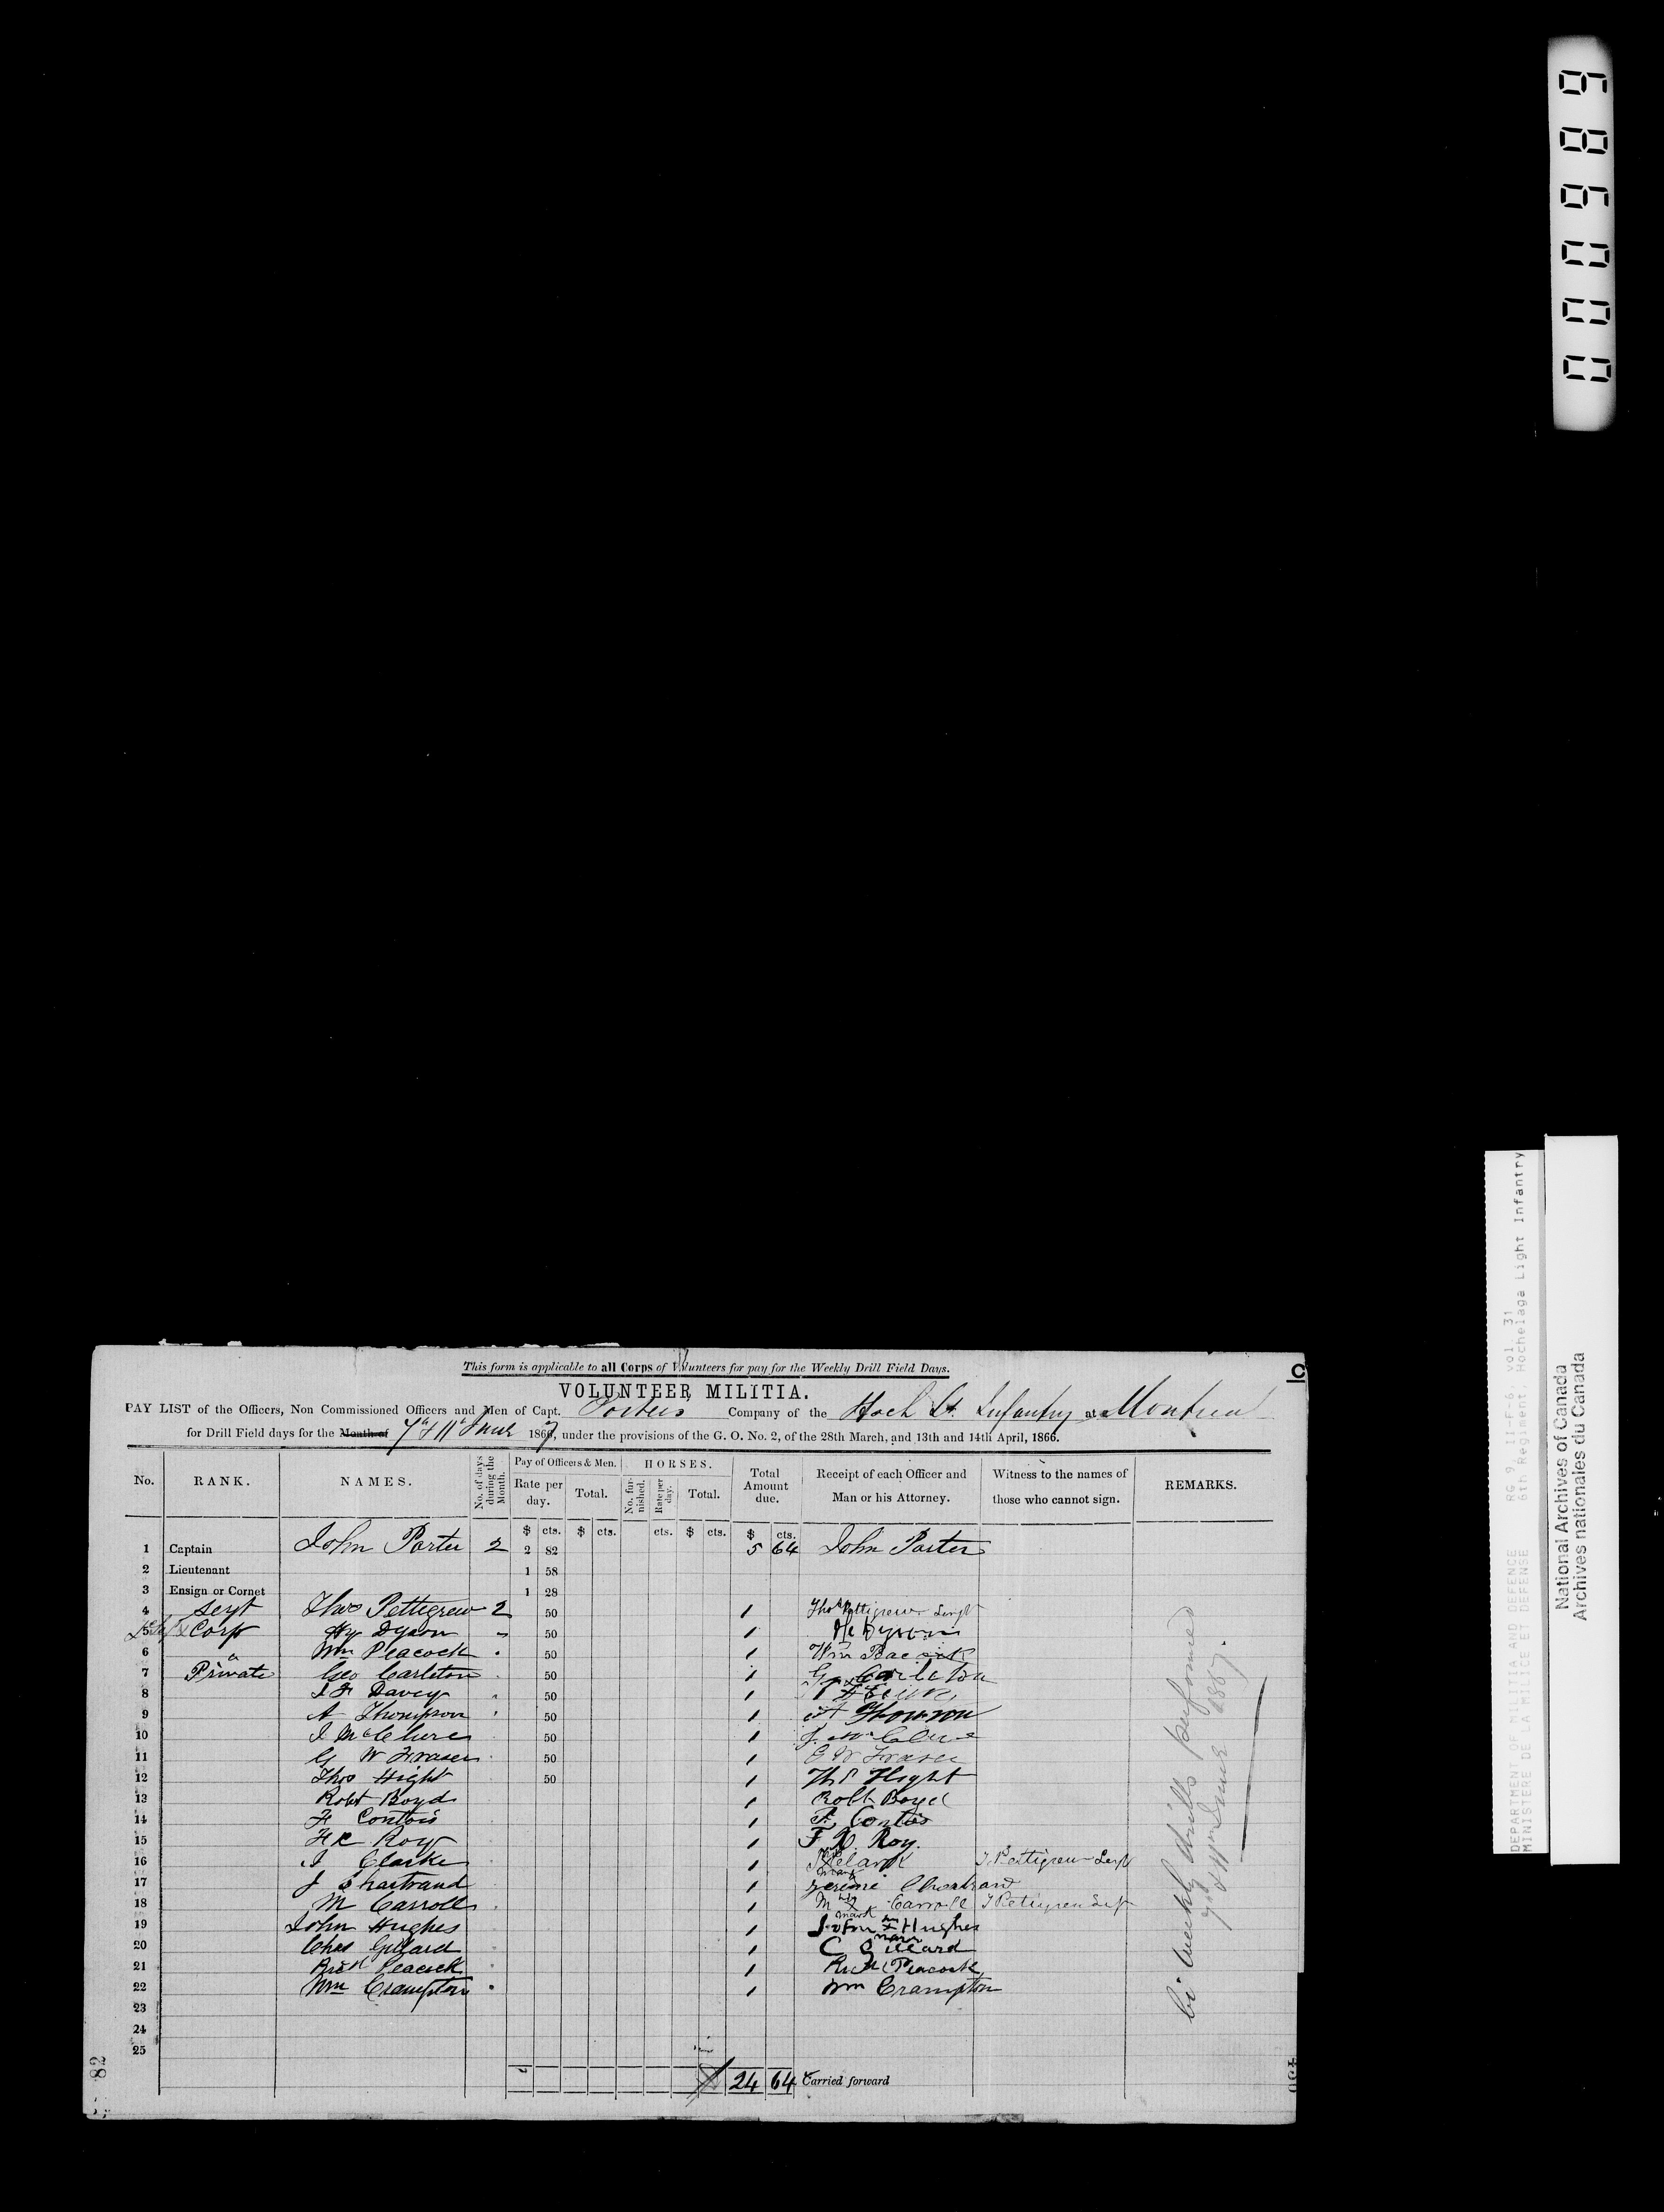 This form is applicable to all Corps of Volunteers for pay for the Weekly Drill Field Days.
C
VOLUNTEER MILITIA.
PAY LIST of the Officers, Non Commissioned Officers and Men of Capt. Porter's Company of the Hoch Lt. Infantry at Montreal
for Drill Field days for the Month of 7th & 11th June 1867, under the provisions of the G. O. No. 2, of the 28th March, and 13th and 14th April, 1866.
No. RANK. NAMES. No. of days during the Month. Pay of Officers & Men. HORSES. Total Amount due. Receipt of each Officer and Man or his Attorney. Witness to the names of those who cannot sign. REMARKS.
Rate per day. Total. No. furnished. Rate per day. Total.
$ cts. $ cts. cts. $ cts. $ cts.
1 Captain John Porter 2 2 82 5 64 John Porter
2 Lieutenant 1 58
3 Ensign or Cornet 1 28
4 Sergt Thos Pettigrew 2 50 1 Thos Pettigrew Sergt
5 Corp Hy Dyson " 50 1 Dyson
6 " Wm Peacock " 50 1 Wm Peacock
7 Private Geo Carleton 50 1 Geo Carleton
8 J F Davey " 50 1
9 A Thompson " 50 1 A Thomson
10 J McClure 50 1 J. McClure
11 G W Fraser 50 1 G W Fraser
12 Thos Hight 50 1 Thos Hight
13 Robt Boyd 1 Robt Boyd
14 F Contois 1 F. Contois
15 F R Roy 1 F R. Roy.
16 J Clarke 1 J Clark mark T Pettigrew Sergt
17 J Chartrand 1 Jeremi Chartrand
18 M Carroll 1 M his X mark Carroll T Pettigrew Sergt
19 John Hughes 1 John his X mark Hughes
20 Chas Gillard 1 C Gillard
21 Richd Peacock 1 Richd Peacock
22 Wm Crampton " 1 Wm Crampton
23
24
25
24 64 Carried forward
bi-weekly drills performed
7th & 11th June 1867.
82
National Archives of Canada
Archives nationales du Canada
DEPARTMENT OF MILITIA AND DEFENCE RG 9, II-F-6, vol 31
MINISTERE DE LA MILICE ET DEFENSE 6th Regiment, Hochelaga Light Infantry
000989